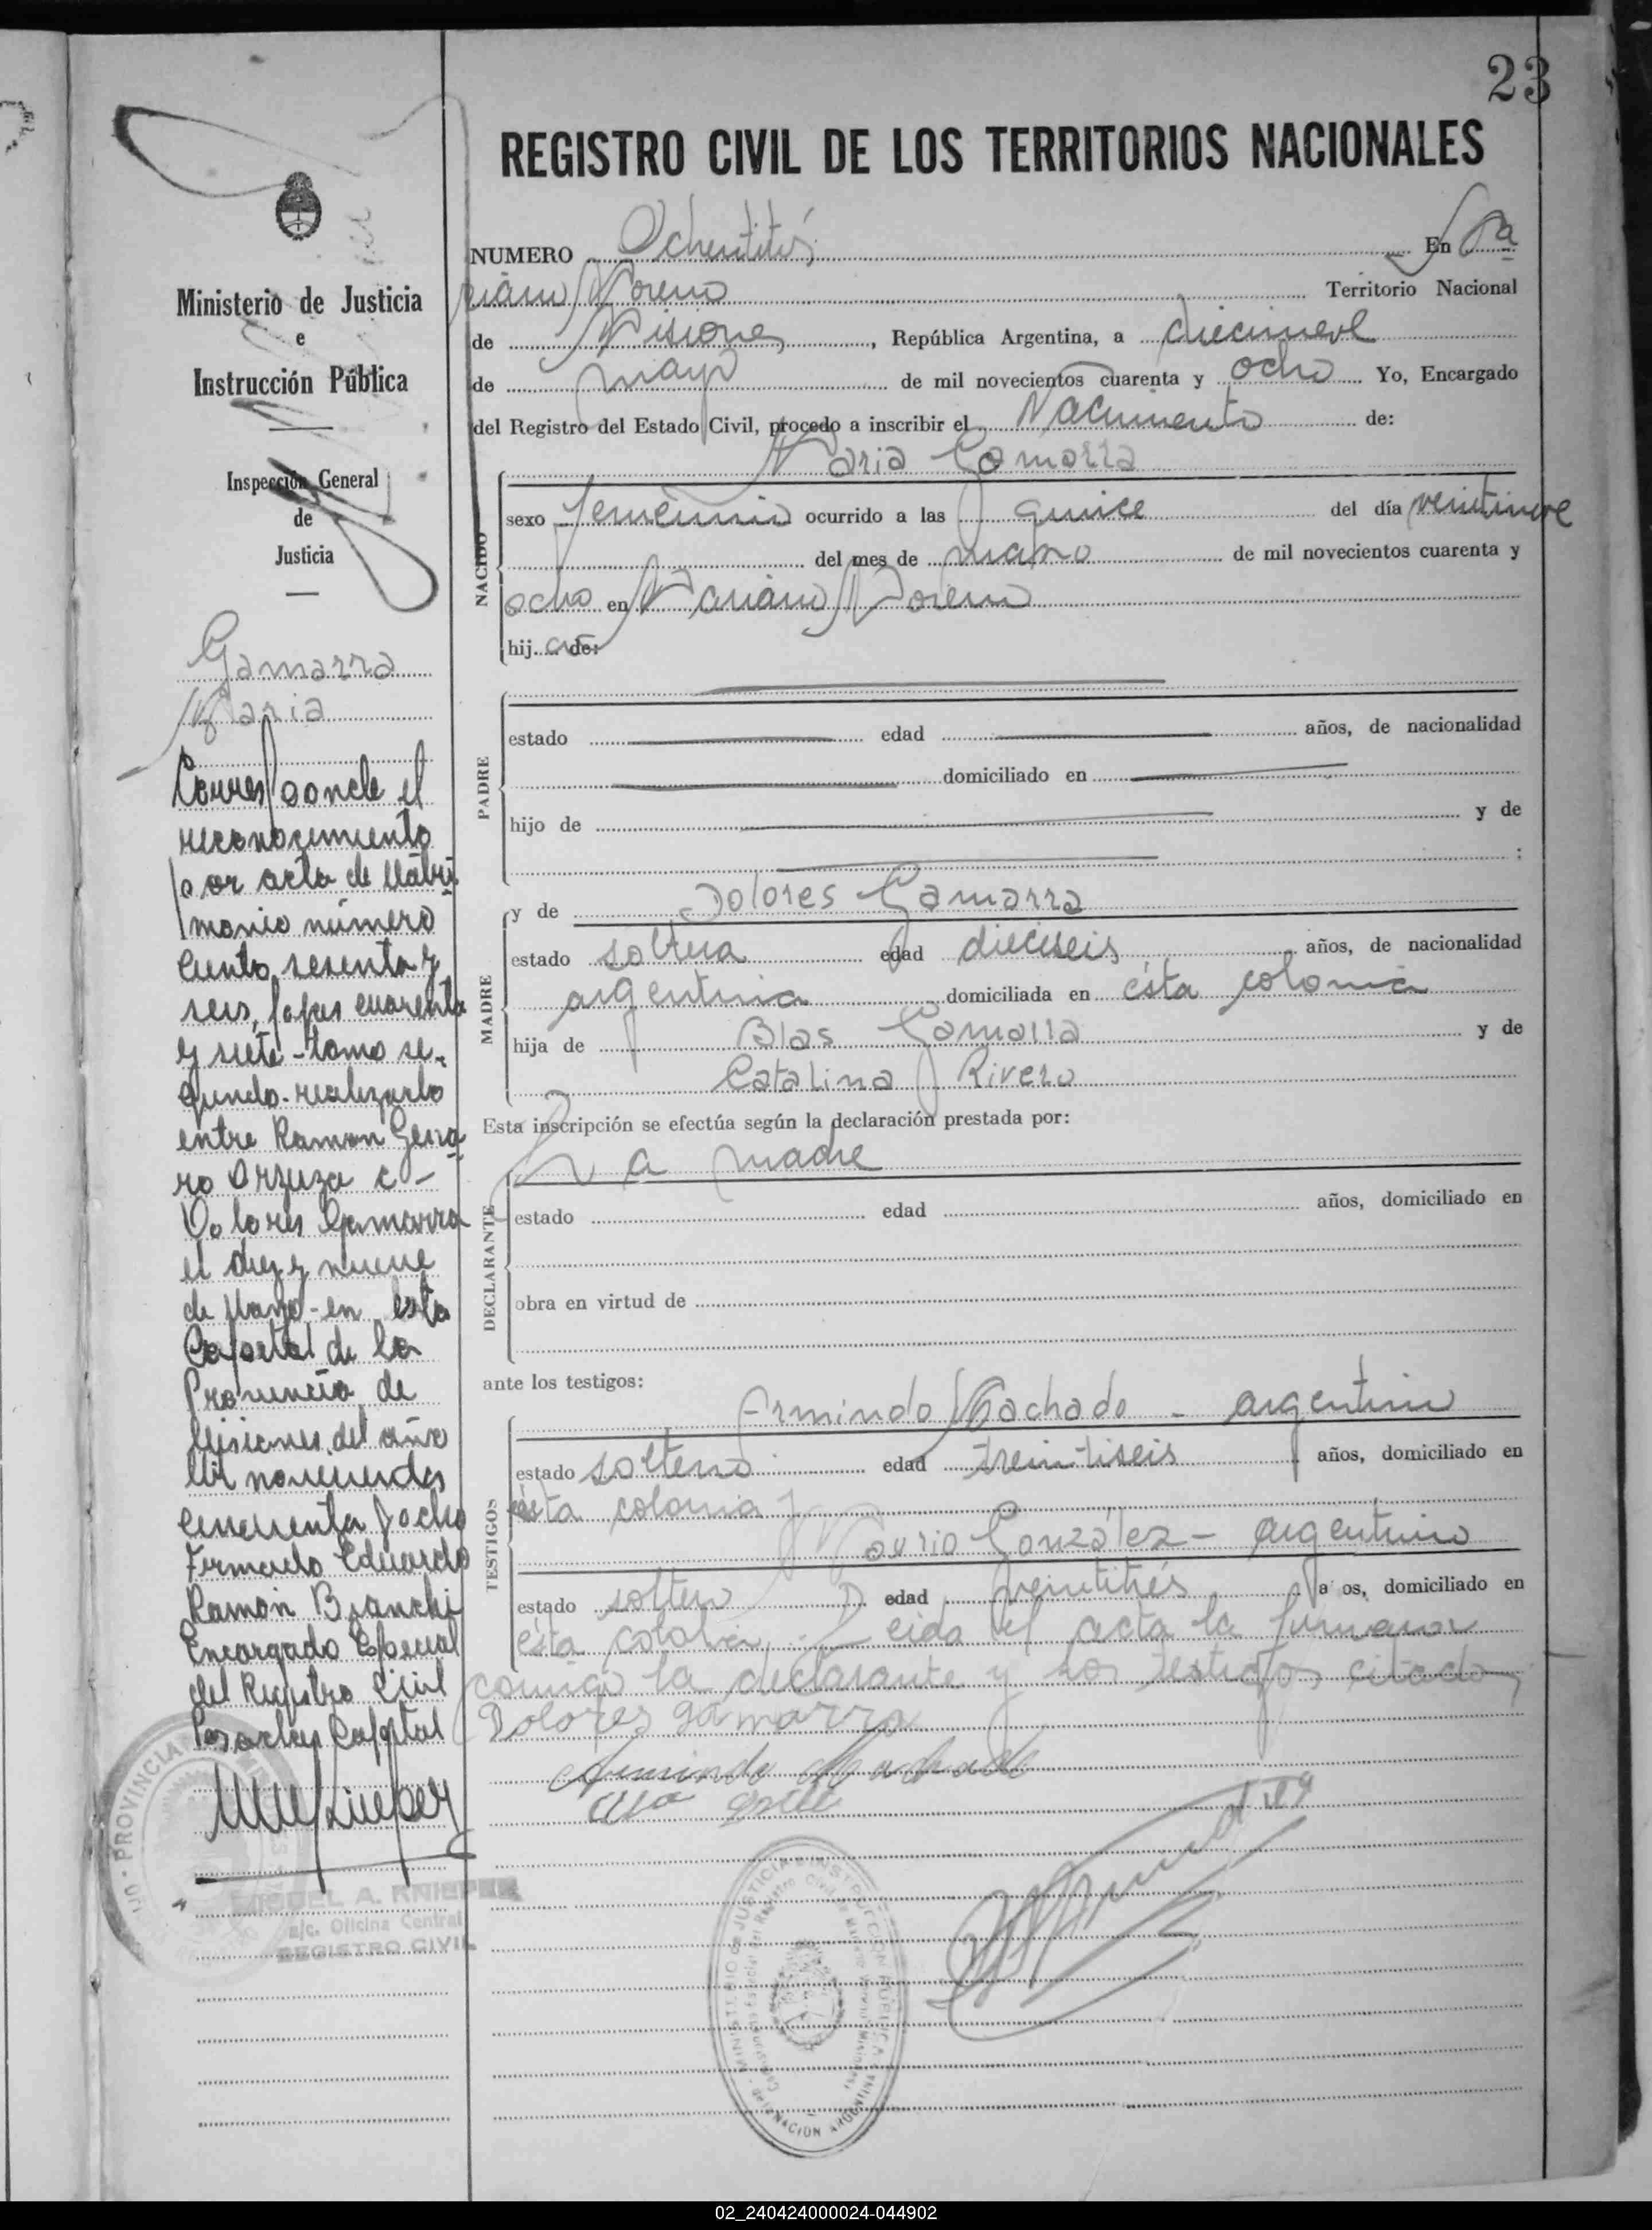 23
REGISTRO CIVIL DE LOS TERRITORIOS NACIONALES
NUMERO Ochentitrés En
riano Moreno Territorio Nacional
de Misiones, República Argentina, a diecinueve
de mayo de mil novecientos cuarenta y ocho Yo, Encargado
del Registro del Estado Civil, procedo a inscribir el Nacimiento de:
Maria Gamarra
NACIDO
sexo femenino ocurrido a las quince del día veintinueve
del mes de marzo de mil novecientos cuarenta y
ocho en Mariano Moreno
hij a de:
PADRE
estado edad años, de nacionalidad
domiciliado en
hijo de y de
:
MADRE
y de Dolores Gamarra
estado soltera edad dieciseis años, de nacionalidad
argentina domiciliada en ésta colonia
hija de Blas Gamarra y de
Catalina Rivero
Esta inscripción se efectúa según la declaración prestada por:
La madre
DECLARANTE
estado edad años, domiciliado en
obra en virtud de
ante los testigos:
TESTIGOS
Armindo Machado - argentino
estado soltero edad treintiseis años, domiciliado en
ésta colonia y
Mario González - argentino
estado soltero edad veintitrés a os, domiciliado en
ésta colonia. Leida el acta la firmaron
conmigo la declarante y los testigos citados
Dolores gamarra
Armindo Machado
Ministerio de Justicia
e
Instrucción Pública
Inspección General
de
Justicia
Gamarra
Maria
Corresponde el
reconocimiento
por acta de Matri
monio número
ciento sesenta y
seis, fojas cuarenta
y siete - tomo se-
gundo - realizado
entre Ramon Gena
ro Orzuza c-
Dolores Gamarra
el diez y nueve
de Mayo - en esta
Capital de la
Provincia de
Misiones del año
Mil novecientos
cincuenta y ocho
Firmado Eduardo
Ramon Bianchi
Encargado Especial
del Registro Civil
Posadas Capital
PROVINCIA
MIGUEL A. KNIEPER
a/c. Oficina Central
REGISTRO CIVIL
MINISTERIO de JUSTICIA e INSTRUCCION PUBLICA
NACION ARGENTINA
02_240424000024-044902